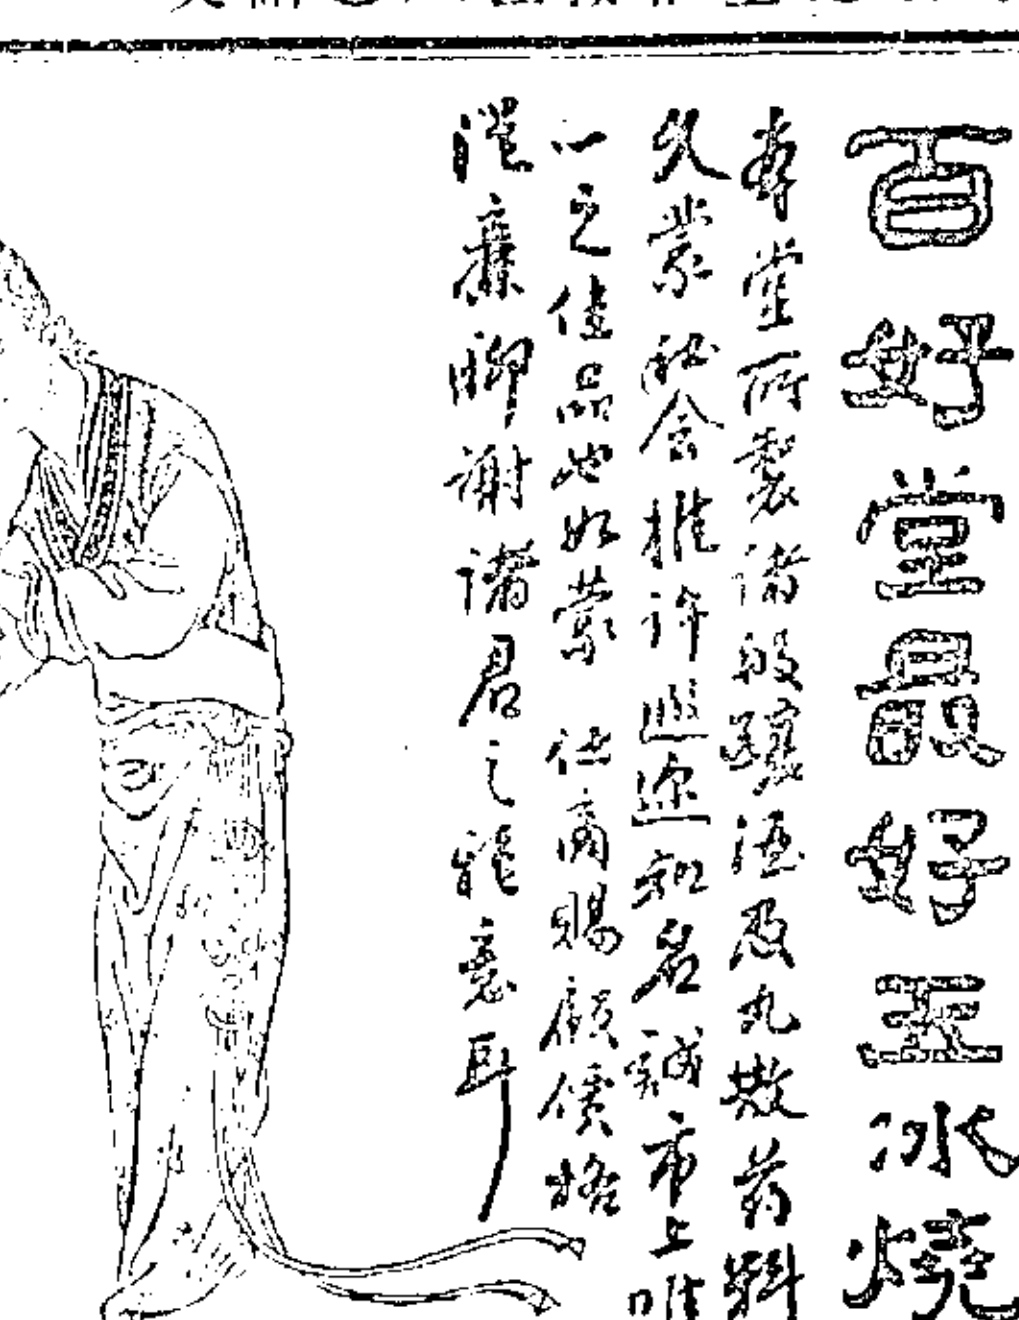 百好堂最好玉冰燒
本堂所製諸般讓酒及丸散葯料
久蒙紳會推許遐邇知名誠市上唯
一之佳品也如蒙 仕商賜顧價格
從廉聊謝諸君之雅意耳